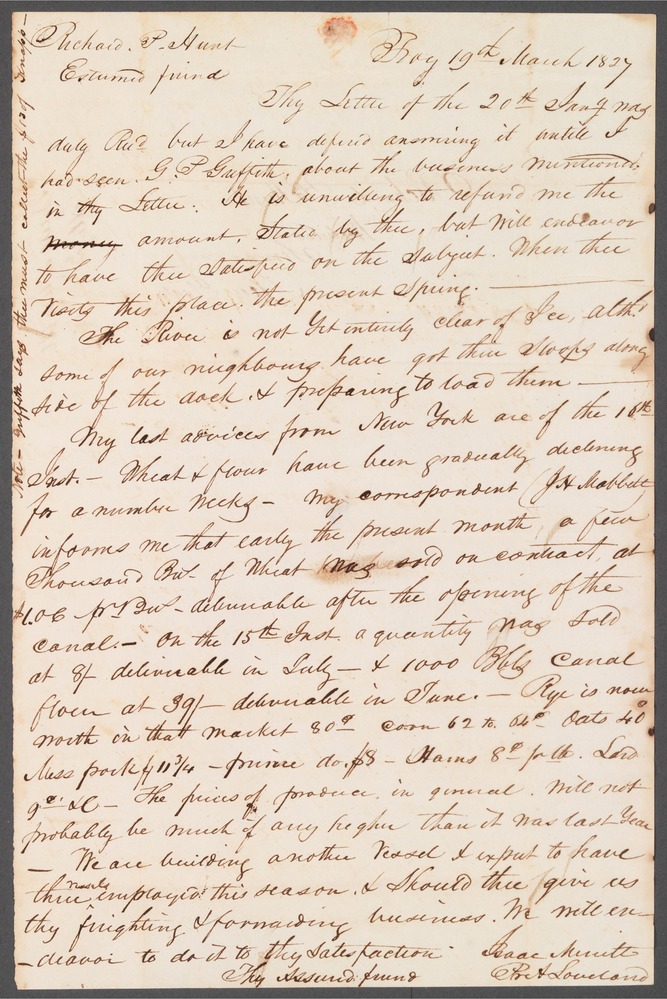 Richard. P. Hunt
Troy 19th March 1827
Esteemed friend
Thy Letter of the 20th Jany was
duly Recd but I have defered answering it untill I
had seen G. P Griffith, about the business mentioned
in thy Letter. He is unwilling to refund me the
money amount, Stated by thee, but Will endeavor
to have thee Satisfied on the Subject. When thee
Visits this place. the present Spring. —
The River is not Yet intirely clear of Ice, altho'
some of our neighbours have got their Sloops along
side of the dock. & preparing to load them —
My last advices from New York are of the 16th
Inst. — Wheat & flour have been gradually declining
for a number Weeks — my correspondent (J H Mabbett
informs me that early the present month, a few
Thousand Bus. of Wheat was sold on contract, at
$1.06 pr. Bus - deliverable after the opening of the
canal. — On the 15th Inst. a quantity was Sold
at 8/ deliverable in July — & 1000 Bbls Canal
flour at 39/ — deliverable in June. — Rye is now
worth in that market 80c corn 62 to. 64c Oats 40c
Mess pork $11 3/4 — prime do. $8 — Hams 8c pr lb. Lard
9c &C — The prices of produce. in general. Will not
probably be much if any higher than it was last Year
— We are building another Vessel & expect to have
three Vessels employed this season. & Should thee give us
thy freighting & forwarding business. We will en-
-deavor to do it to thy Satisfaction
Thy Assured friend
Isaac Merritt
Pr A Loveland
Note — Griffith Says thee must collect the $13 of